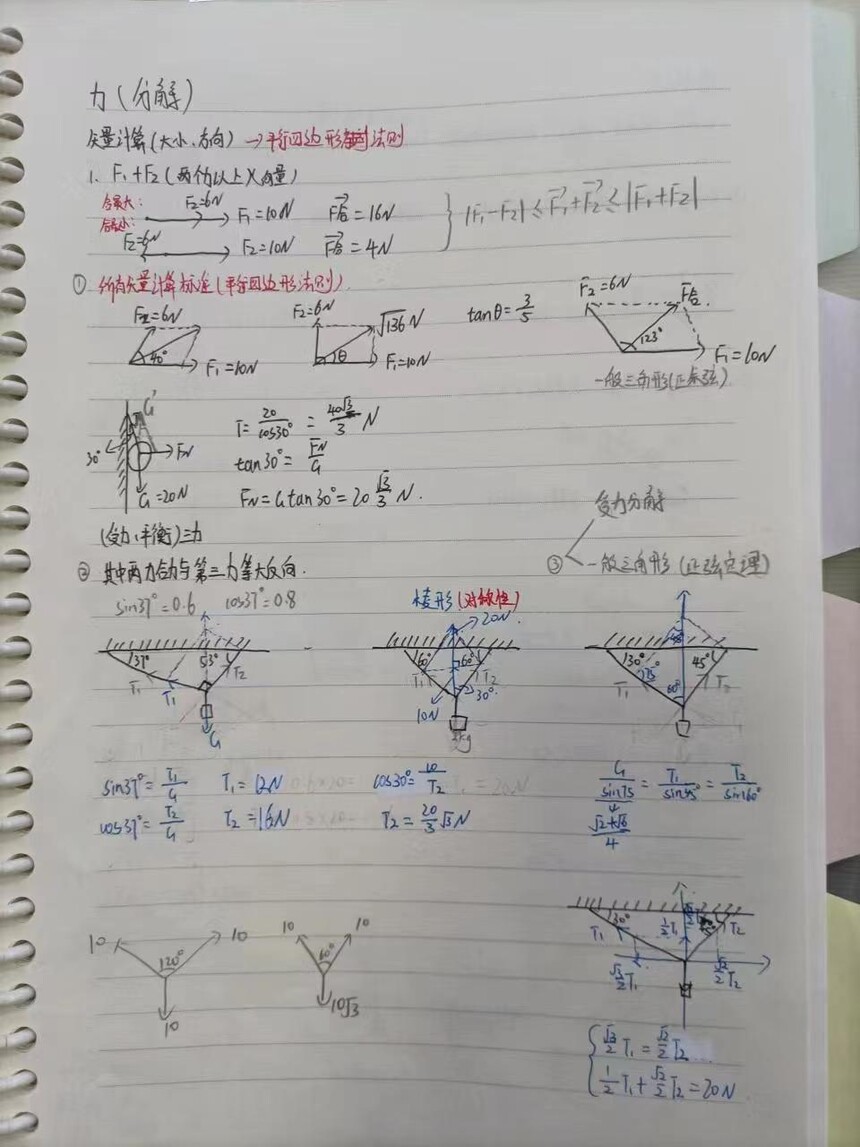 力(分解)
矢量计算(大小、方向) →平行四边形法则
1. F₁+F₂(两个以上)(向量)
合最大: F₂=6N F₁=10N F合=16N
合最小: F₂=6N F₂=10N F合=4N
|F₁-F₂|≤F₁+F₂≤|F₁+F₂|
① 所有矢量计算标准(平行四边形法则)
F₂=6N 40° F₁=10N
F₂=6N √136N θ F₁=10N
tanθ=3/5
F₂=6N F合. 123° F₁=10N
一般三角形(正余弦)
G' 30° FN G=20N
T=20/cos30°=40√3/3 N
tan30°=FN/G
FN=Gtan30°=20√3/3 N.
(受力平衡)三力
② 其中两力合力与第三力等大反向.
受力分解
③ 一般三角形(正弦定理)
sin37°=0.6 cos37°=0.8
37° 53° T₁ T₁ T₂ G
菱形(对称性)
20N 60° 60° T₁ T₂ 30° 10N 2kg
30° 45° 45° 75° 60° T₁ T₂
sin37°=T₁/G T₁=12N
cos37°=T₂/G T₂=16N
cos30°=10/T₂
T₂=20/3√3N
G/sin75=T₁/sin45°=T₂/sin60°
√2+√6/4
10 10 120° 10
10 10 60° 10√3
30° T₁ ½T₁ T₂ √3/2T₁ √2/2T₂
√3/2T₁=√2/2T₂
½T₁+√2/2T₂=20N